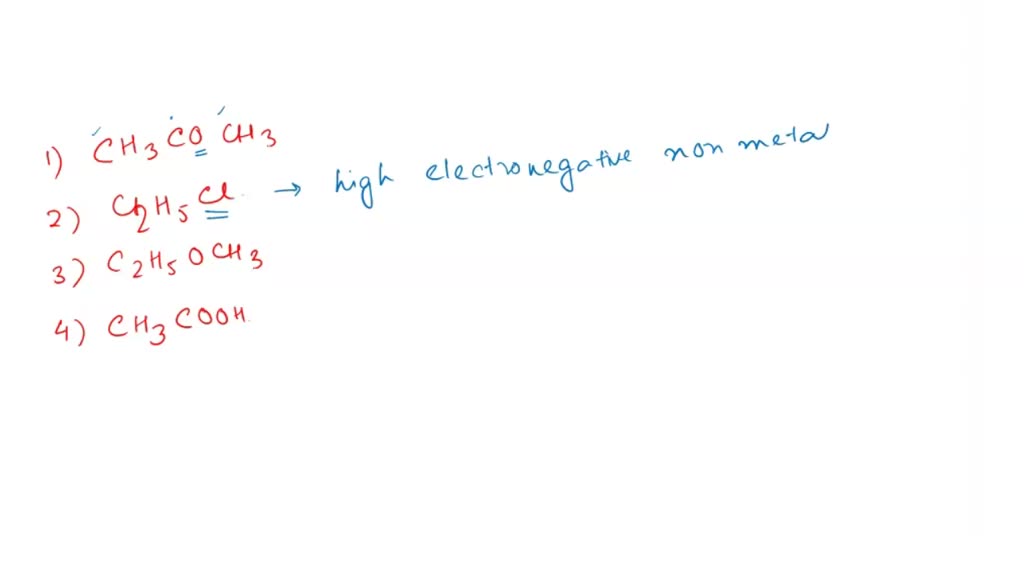 1) CH3COCH3
2) C2H5Cl → high electronegative non metal
3) C2H5OCH3
4) CH3COOH